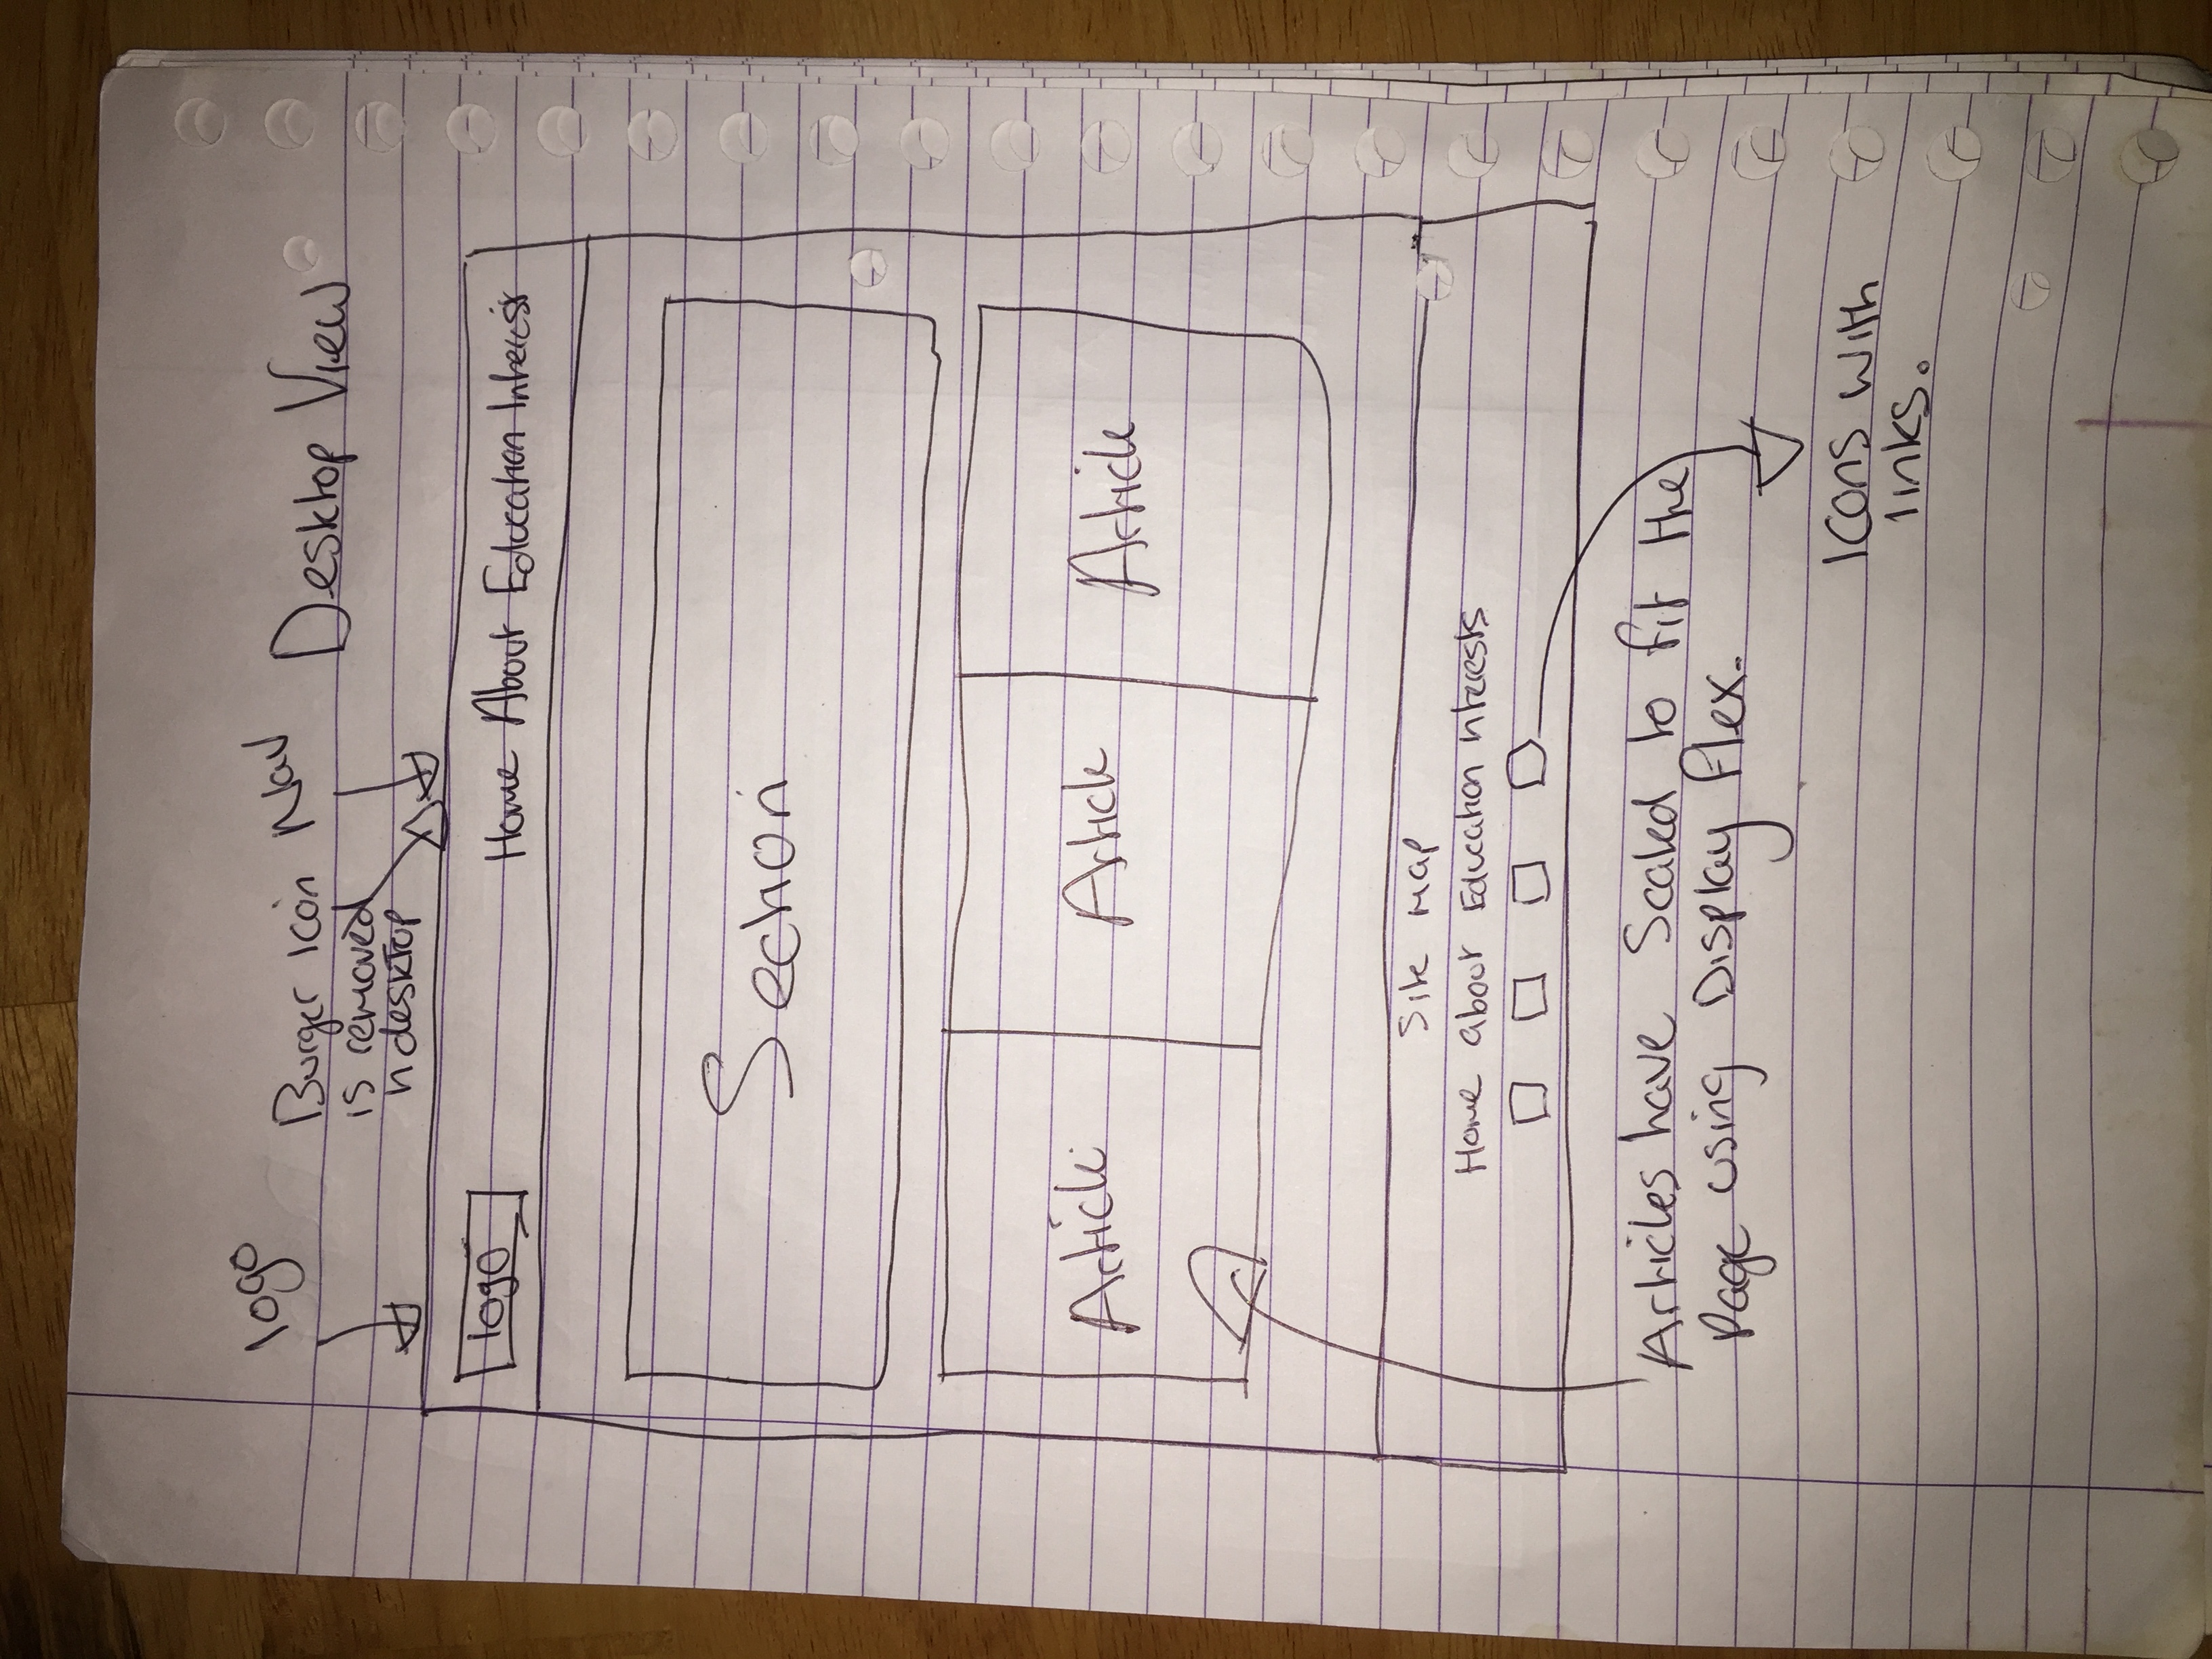 logo
Burger Icon
is removed
n desktop
Nav
Desktop View
logo
Home About Education Interest
Section
Article
Article
Article
Site Map
Home about Education interests
Articles have Scaled to fit the
Page using Display Flex.
Icons with
links.